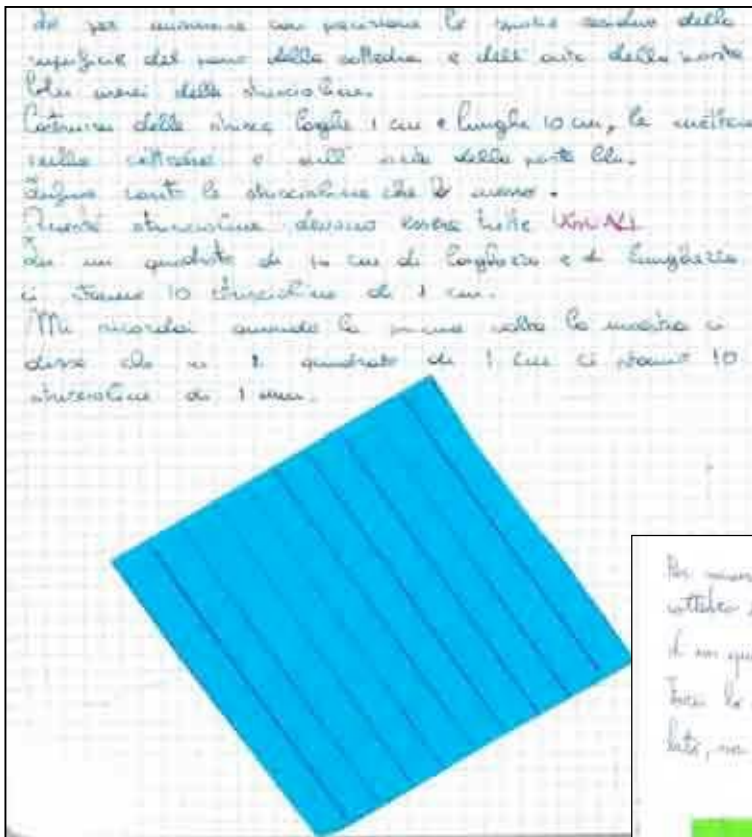 Io per misurare con precisione lo spazio residuo della
superficie del piano della cattedra e dell' anta della porta
userei delle striscioline.
Costruirei delle strisce larghe 1 cm e lunghe 10 cm, le metterei
sulla cattedra e sull' anta della porta blu.
Infine conto le striscioline che ho messo.
Queste striscioline devono essere tutte UGUALI
In un quadrato di 10 cm di larghezza e di lunghezza
ci stanno 10 striscioline di 1 cm.
Mi ricordai quando la prima volta la maestra ci
disse che in 1 quadrato di 1 cm ci stanno 10
striscioline di 1 mm.
Per
di un
lato, ma